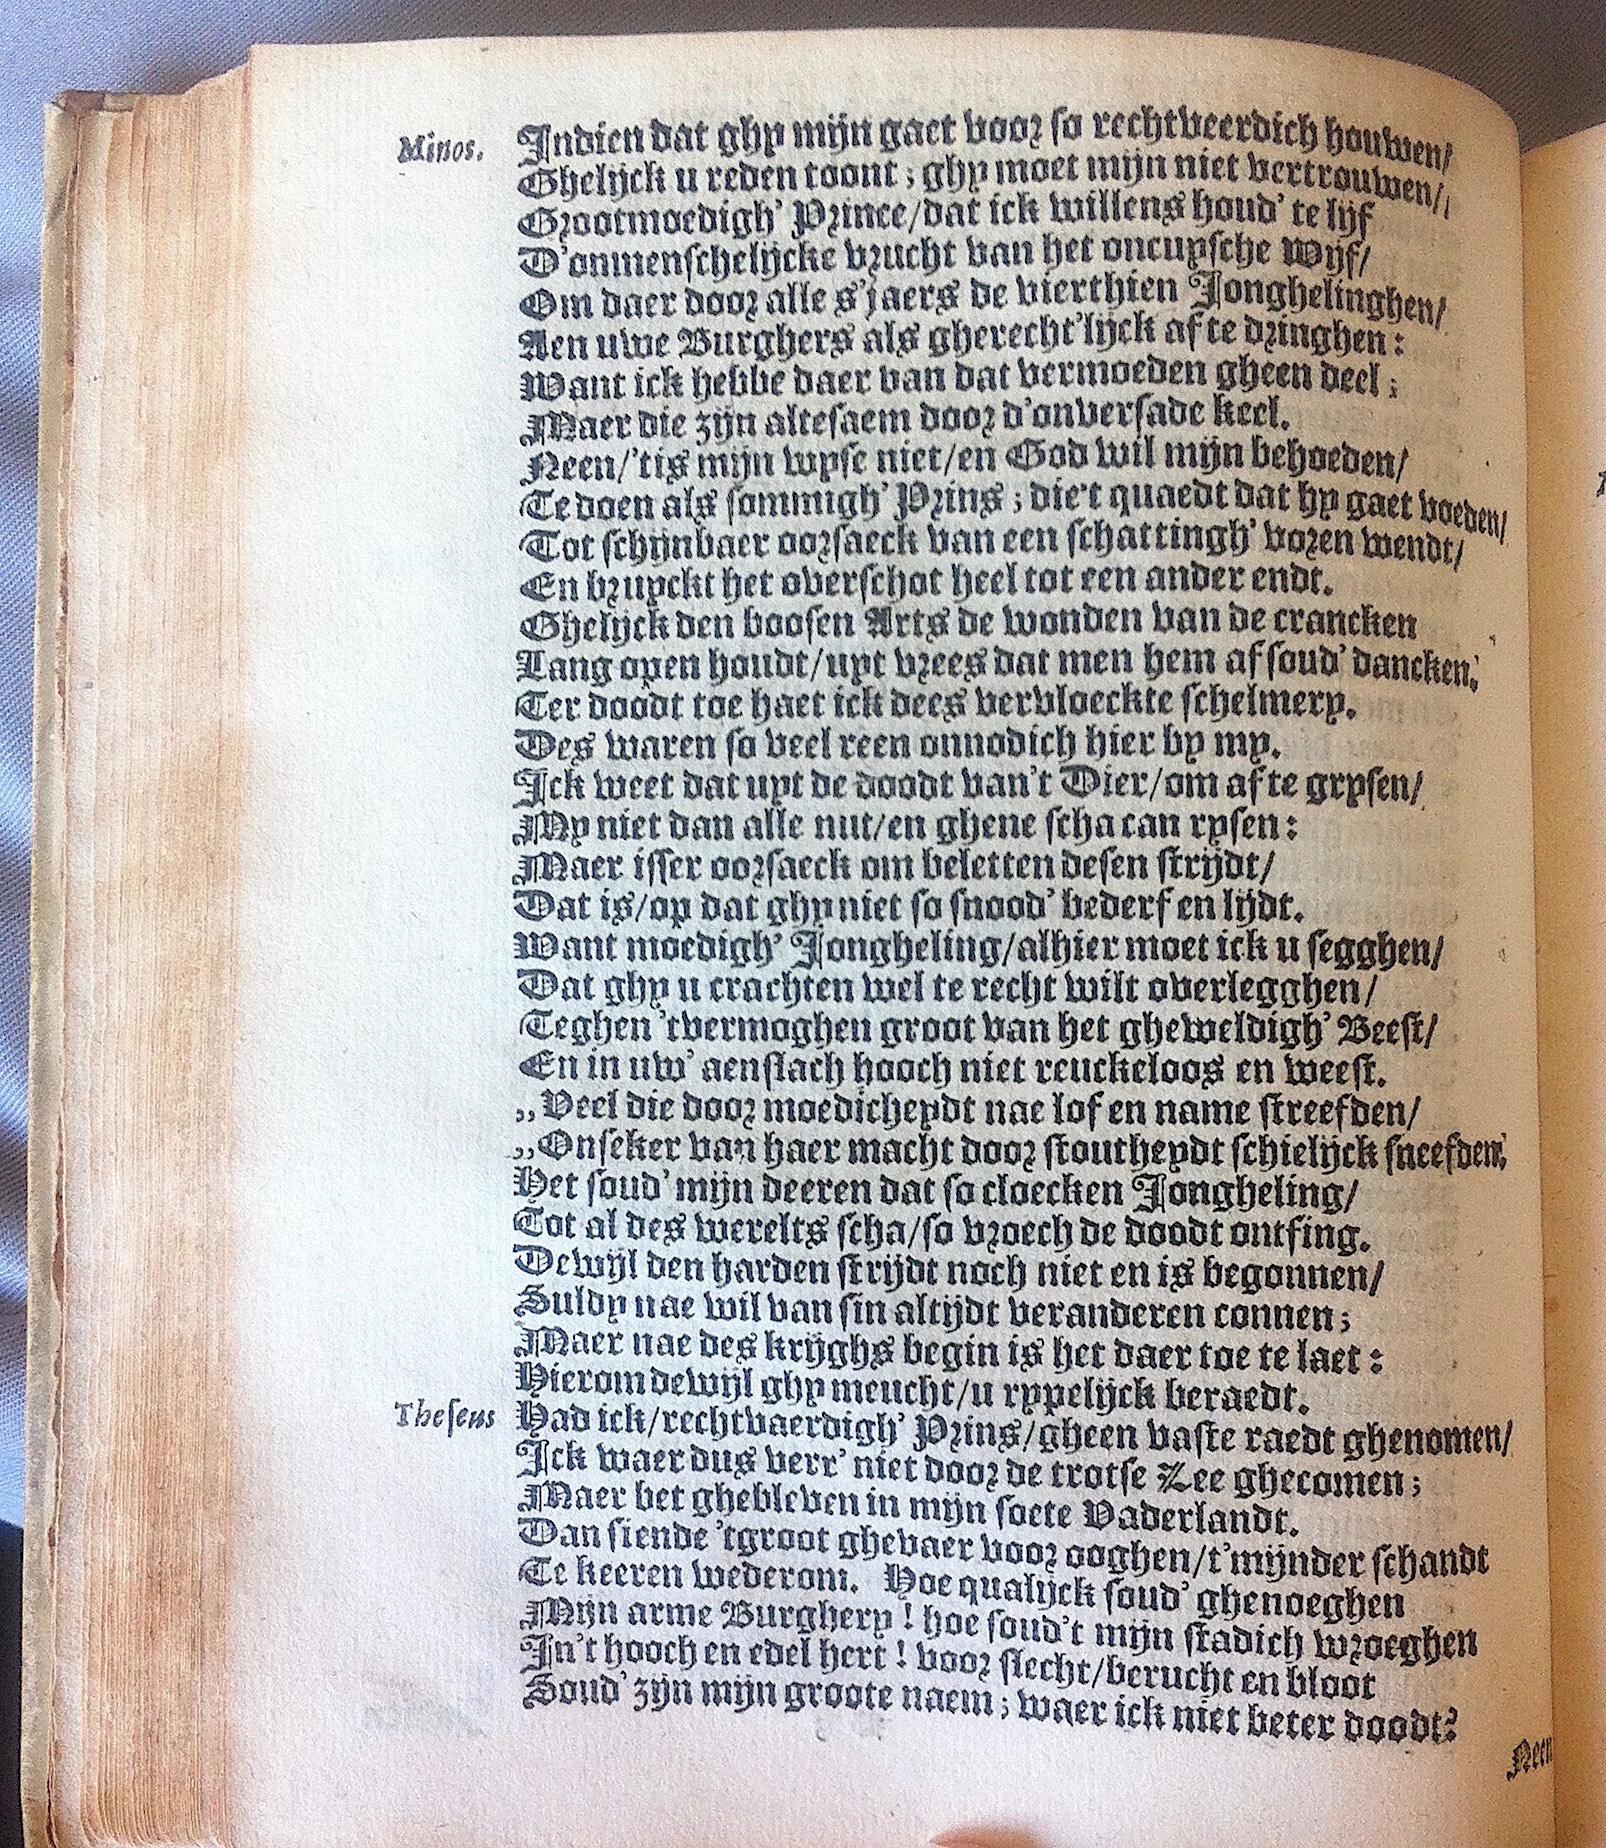 Minos. Indien dat ghy mijn gaet voor so rechtveerdich houwen/
Ghelijck u reden toont; ghy moet mijn niet vertrouwen/
Grootmoedigh' Prince/dat ick willens houd' te lijf
D'onmenschelijcke vrucht van het oncuysche Wijf/
Om daer door alle s'jaers de vierthien Jonghelinghen/
Aen uwe Burghers als gherecht'lijck af te dringhen:
Want ick hebbe daer van dat vermoeden gheen deel;
Maer die zijn altesaem door d'onversade keel.
Neen/'tis mijn wyse niet/en God wil mijn behoeden/
Te doen als sommigh' Prins; die't quaedt dat hy gaet voeden/
Tot schijnbaer oorsaeck van een schattingh' voren wendt/
En bruyckt het overschot heel tot een ander endt.
Ghelijck den boosen Arts de wonden van de crancken
Lang open houdt/uyt vrees dat men hem af soud' dancken.
Ter doodt toe haet ick dees vervloeckte schelmery.
Des waren so veel reen onnodich hier by my.
Ick weet dat uyt de doodt van't Dier/om af te grysen/
My niet dan alle nut/en ghene scha can rysen:
Maer isser oorsaeck om beletten desen strijdt/
Dat is/op dat ghy niet so snood' bederf en lijdt.
Want moedigh' Jongheling/alhier moet ick u segghen/
Dat ghy u crachten wel te recht wilt overlegghen/
Teghen 'tvermoghen groot van het gheweldigh' Beest/
En in uw' aenslach hooch niet reuckeloos en weest.
,,Veel die door moedicheydt nae lof en name streefden/
,,Onseker van haer macht door stoutheydt schielijck sneefden.
Het soud' mijn deeren dat so cloecken Jongheling/
Tot al des werelts scha/so vroech de doodt ontfing.
Dewijl den harden strijdt noch niet en is begonnen/
Suldy nae wil van sin altijdt veranderen connen;
Maer nae des krijghs begin is het daer toe te laet:
Hierom dewijl ghy meucht/u rypelijck beraedt.
Theseus Had ick/rechtvaerdigh' Prins/gheen vaste raedt ghenomen/
Ick waer dus verr' niet door de trotse Zee ghecomen;
Maer bet ghebleven in mijn soete Vaderlandt.
Dan siende 'tgroot ghevaer voor ooghen/t'mijnder schandt
Te keeren wederom. Hoe qualijck soud' ghenoeghen
Mijn arme Burghery! hoe soud't mijn stadich wroeghen
In't hooch en edel hert! voor slecht/berucht en bloot
Soud' zijn mijn groote naem; waer ick niet beter doodt?
Neen